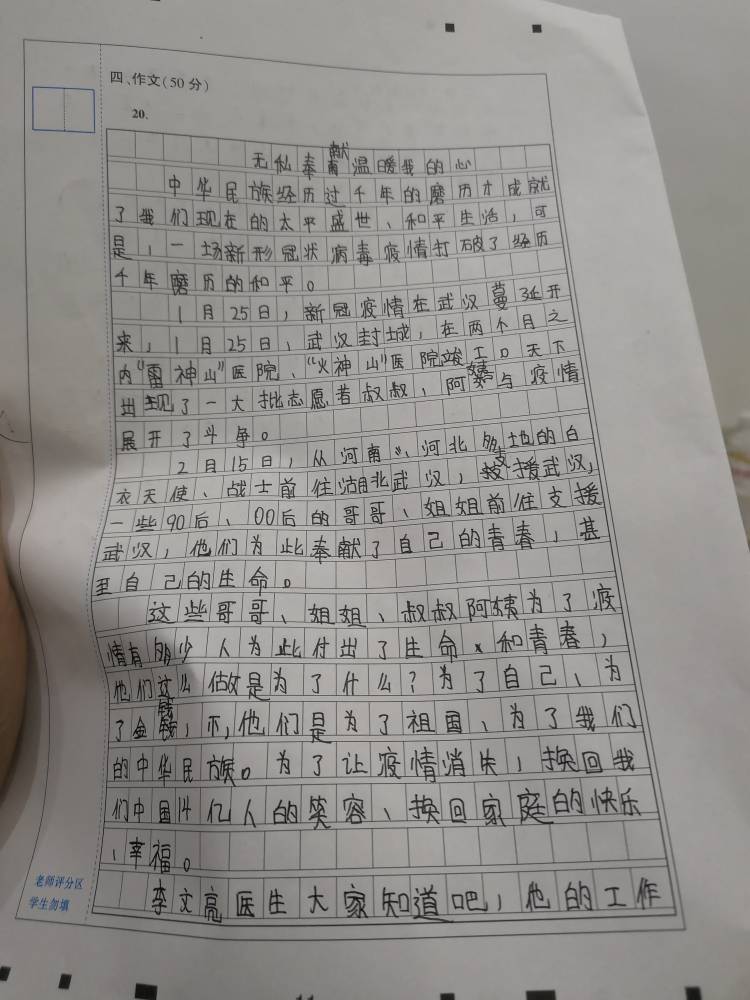 四、作文(50分)
20.
无私奉献温暖我的心
中华民族经历过千年的磨历才成就
了我们现在的太平盛世、和平生活，可
是，一场新形冠状病毒疫情打破了经历
千年磨历的和平。
1月25日，新冠疫情在武汉蔓延开
来，1月25日，武汉封城，在两个月之
内“雷神山”医院、“火神山”医院竣工。天下
出现了一大批志愿者叔叔、阿姨与疫情
展开了斗争。
2月15日，从河南、河北多地的白
衣天使、战士前往湖北武汉，支援武汉，
一些90后、00后的哥哥、姐姐前往支援
武汉，他们为此奉献了自己的青春，甚
至自己的生命。
这些哥哥、姐姐、叔叔阿姨为了疫
情有多少人为此付出了生命、和青春，
他们这么做是为了什么？为了自己、为
了金钱，不，他们是为了祖国、为了我们
的中华民族。为了让疫情消失，换回我
们中国14亿人的笑容、换回家庭的快乐
、幸福。
李文亮医生大家知道吧，他的工作
老师评分区
学生勿填